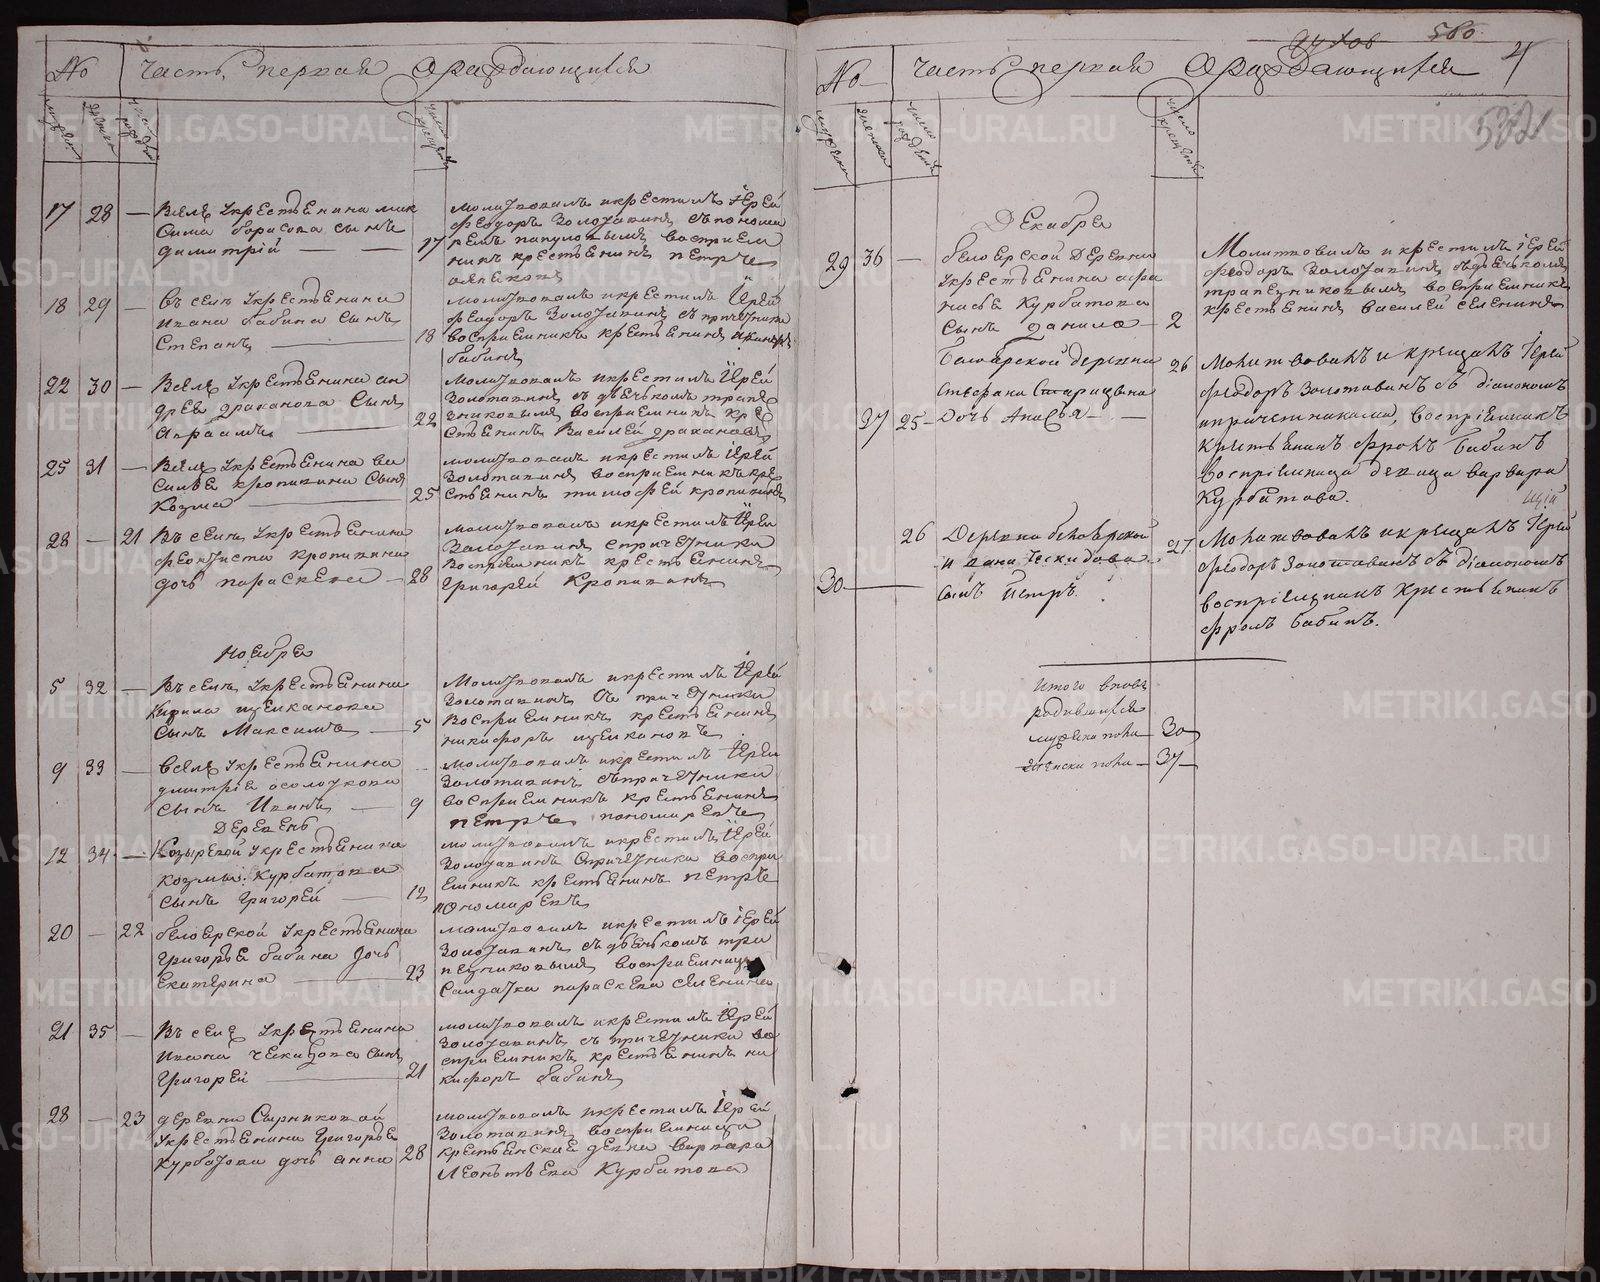 No
часть первая о раждающихся
мужеска
женска
число рожд
число крещен
17 28 — Вселе укрестьянина мак
сима борисова сынъ
димитрiй —
17
молитвовалъ икрестилъ Iерей
феодоръ Золотавинъ съпонома
ремъ папуловымъ восприем
никъ крестьянинъ петръ
18 29 — въ селе укрестьянина
ивана бабина сынъ
Степанъ —
18
молитвовалъ икрестилъ Iерей
феодоръ Золотавинъ съпричетники
восприемникъ крестьянинъ
бабинъ
22 30 — Вселе укрестьянина ан
дрея драканова Сынъ
Авраамъ —
22
Молитвовалъ икрестилъ Iерей
Золотавинъ съ дьячкомъ трапе
зниковымъ восприемникъ кре
стьянинъ Василей дракановъ
25 31 — Вселе укрестьянина ва
силья кропивина Сынъ
Козма —
25
молитвовалъ икрестилъ Iерей
Золотавинъ восприемникъ кре
стьянинъ тимофей кропивинъ
28 — 21 Въ селе укрестьянина
феоктиста кропивина
дочь параскева —
28
молитвовалъ икрестилъ Iерей
Золотавинъ спричетники
Восприемникъ крестьянинъ
григорей Кропивинъ
Ноября
5 32 — Въ селе укрестьянина
Кирила щелканова
Сынъ Максимъ —
5
Молитвовалъ икрестилъ Iерей
Золотавинъ съ причетники
Восприемникъ крестьянинъ
никифоръ щелкановъ
9 33 — Вселе укрестьянина
дмитрiя осолоткова
сынъ Иванъ —
9
молитвовалъ икрестилъ Iерей
Золотавинъ съпричетники
восприемникъ крестьянинъ
петръ пономаревъ
Деревень
12 34 — Козыревой укрестьянина
козмы Курбатова
сынъ григорей —
12
молитвовалъ икрестилъ Iерей
Золотавинъ спричетники воспри
емникъ крестьянинъ петръ
пономаревъ
20 — 22 белоярской укрестьянина
григорья бабина дочь
Екатерина —
23
молитвовалъ икрестилъ Iерей
Золотавинъ съ дьячкомъ тра
пезниковымъ восприемница
Салдатка параскева селенина
21 35 — Въ селе укрестьянина
ивана чекидова сынъ
григорей —
21
молитвовалъ икрестилъ Iерей
Золотавинъ съ причетники во
сприемникъ крестьянинъ ни
кифоръ бабинъ
28 — 23 деревни Сырниковой
укрестьянина григорья
курбатова дочь анна
28
молитвовалъ икрестилъ Iерей
Золотавинъ восприемница
крестьянская девка варвара
Леонтьева Курбатова
560
4
No
часть первая о раждающихся
мужеска
женска
число рожденiя
число крещенiя
Декабря
29 36 — белоярской деревни
укрестьянина афа
насья Курбатова
сынъ данило —
2
Молитвовалъ и крестилъ iерей
феодоръ Золотавинъ съдьячкомъ
трапезниковымъ восприемникъ
крестьянинъ василей селенинъ
деревни
Стефана Старицына
37 25 — Дочь Анисья —
26
Молитвовалъ и крещалъ Iерей
Феодоръ Золотавинъ съ дiакономъ
ипричетниками, воспрiемникъ
Крестьянинъ Фролъ Бабинъ
воспрiемница девица варвара
Курбатова.
26 Деревни белоярской
30 — сынъ Петръ.
27
Молитвовалъ икрещалъ Iерей
Феодоръ Золотавинъ съ дiакономъ
воспрiемникъ Крестьянинъ
Фролъ бабинъ.
итого вновь
родившихся
мужеска пола — 30
женска пола — 37
METRIKI.GASO-URAL.RU